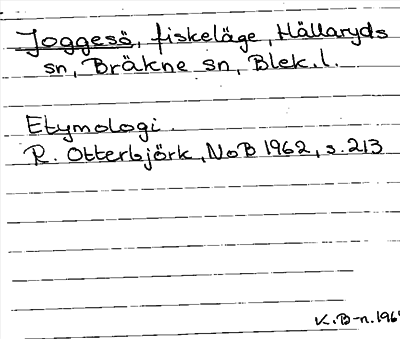 Joggesö, fiskeläge, Hällaryds
sn, Bräkne sn, Blek. l.
Etymologi.
R. Otterbjörk, NoB 1962, s. 213
K.B-n.